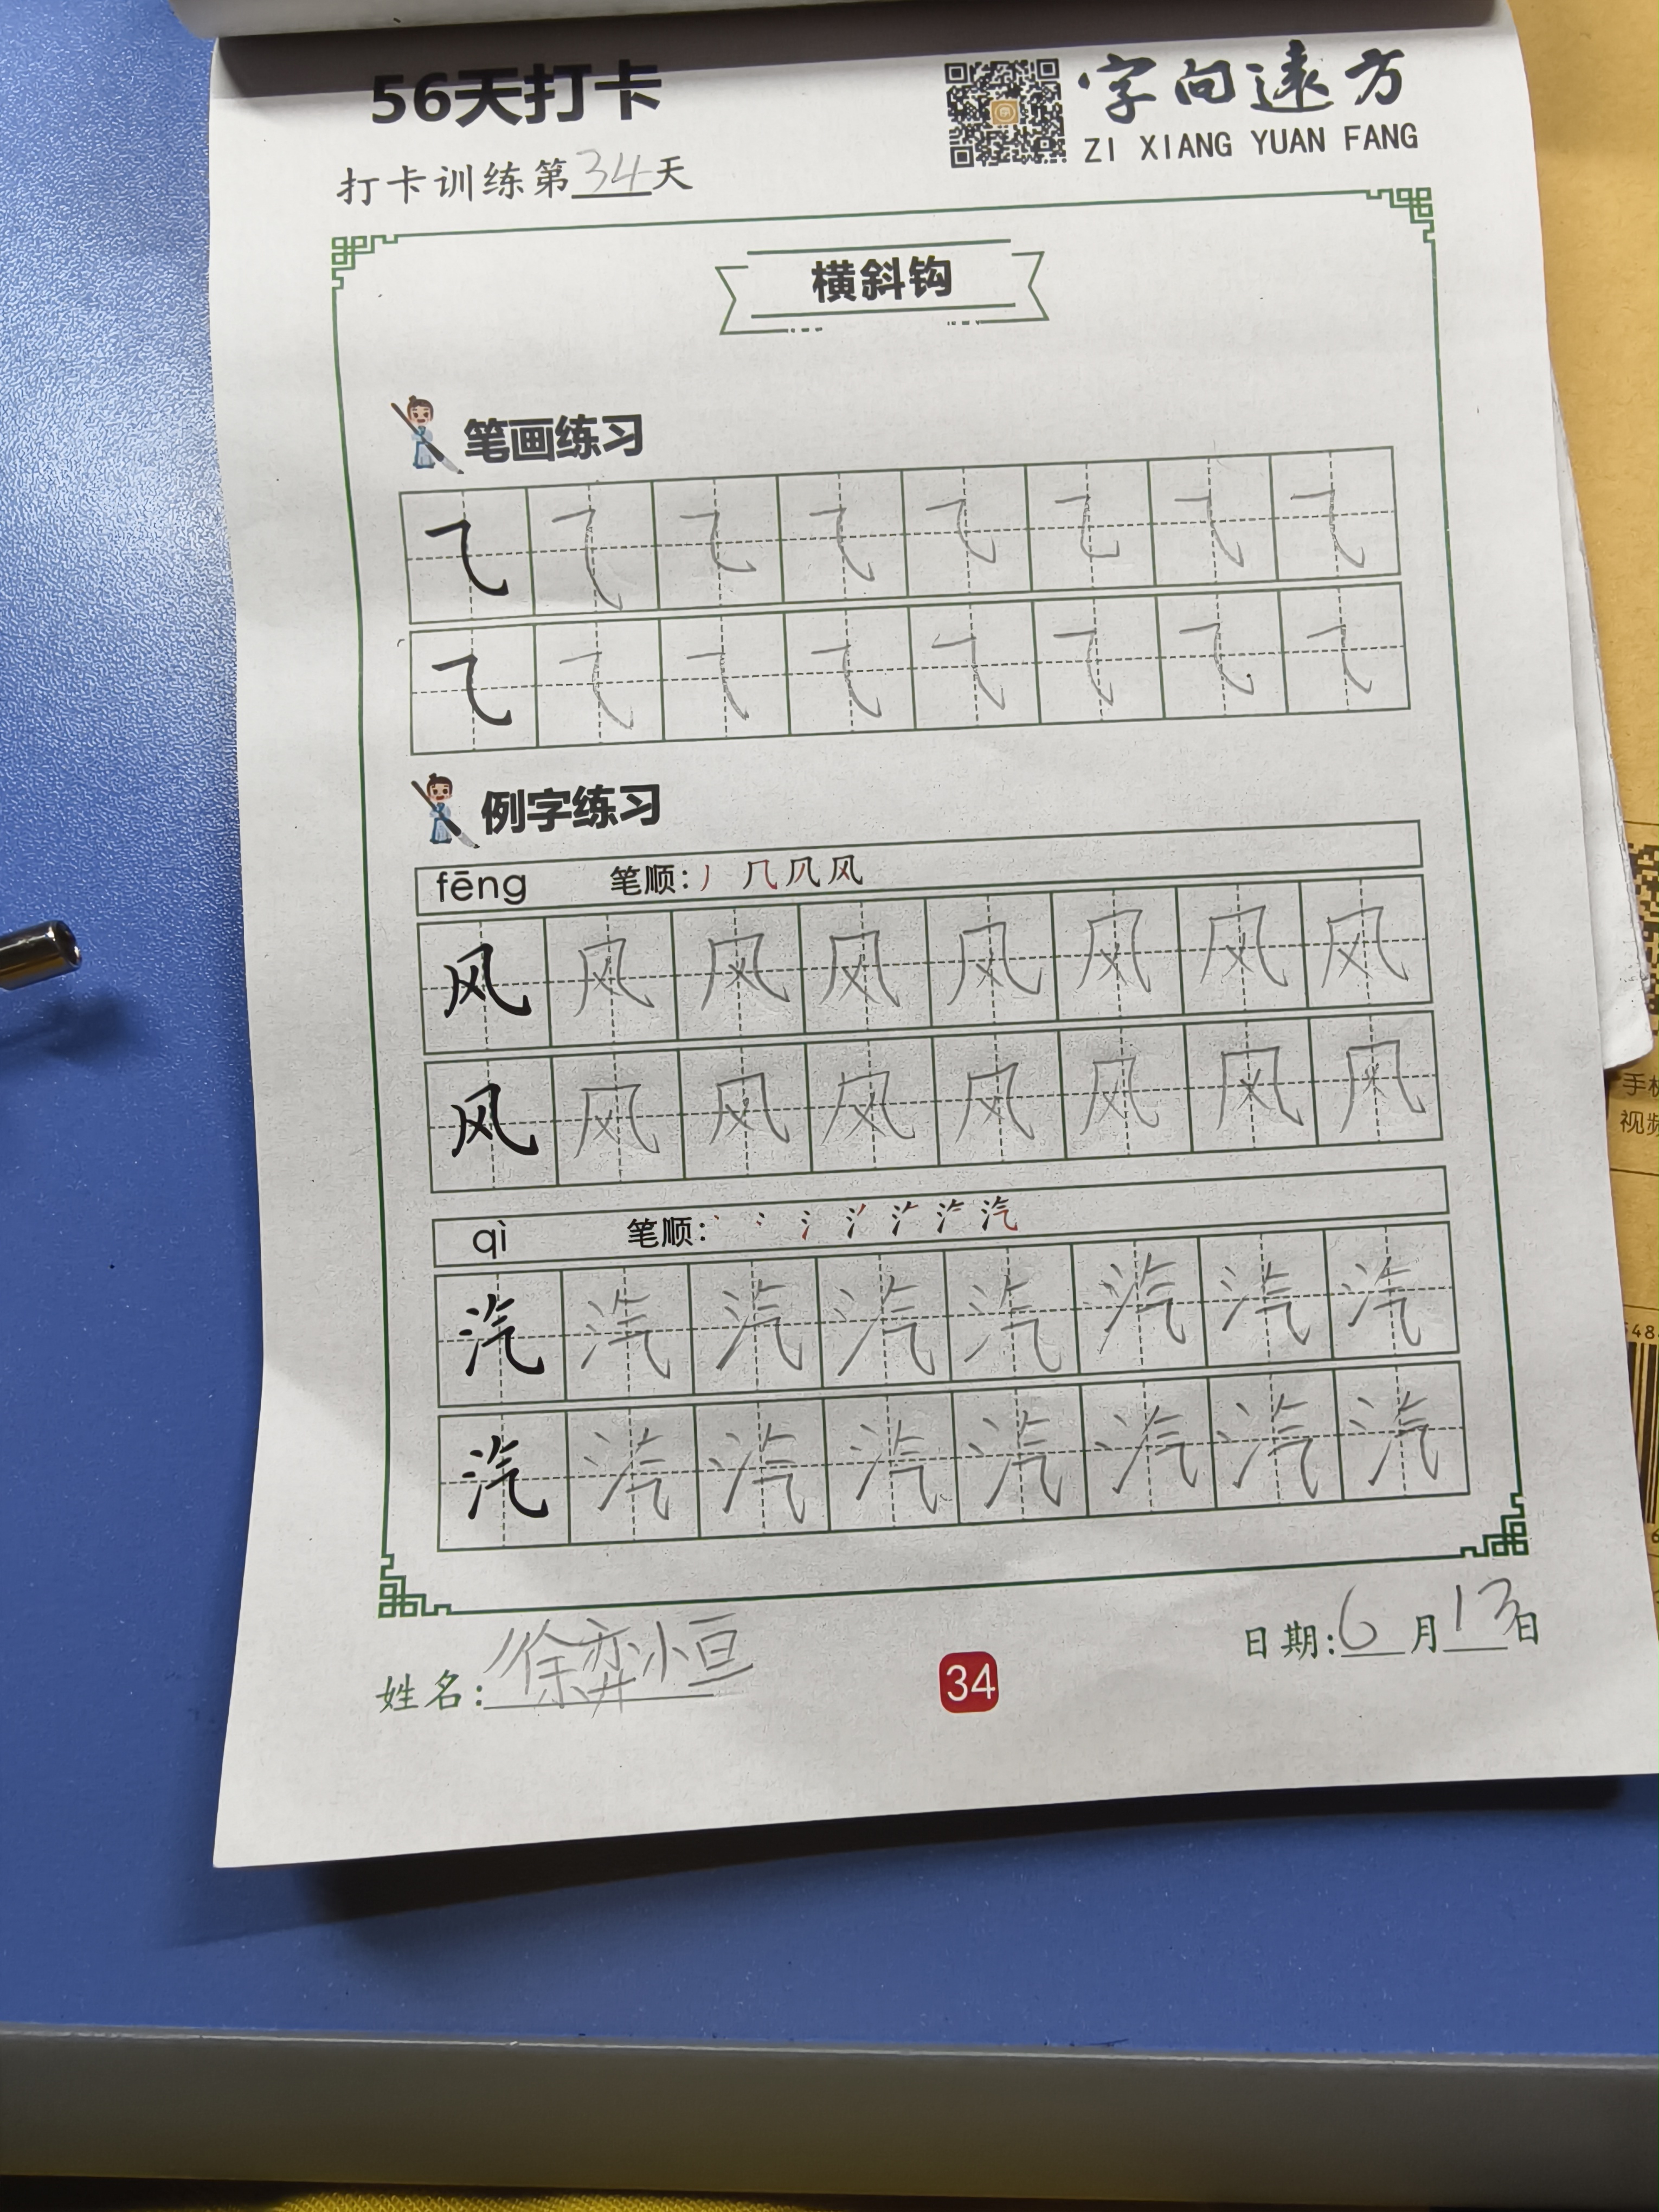 56天打卡
字向远方
ZI XIANG YUAN FANG
打卡训练第34天
横斜钩
笔画练习
例字练习
fēng 笔顺:丿 几 凤 风
风 风 风 风 风 风 风 风
风 风 风 风 风 风 风 风
qì 笔顺:
汽 汽 汽 汽 汽 汽 汽 汽
汽 汽 汽 汽 汽 汽 汽 汽
姓名:徐弈小亘
34
日期:6月13日
视频